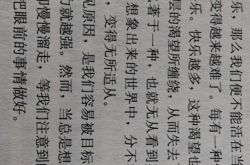 乐,那么我们便不能活在
变得越来越难了。每有一种
乐。快乐越多,这种渴望
层的渴望所缠绕,从而失
著于一种,也就无从看到
想象出来的世界中,分不
变得无所适从。
见原因,是我们容易被目标
力就越强。然而,当总是想
即慢慢溜走,等我们注意到
把眼前的事情做好。